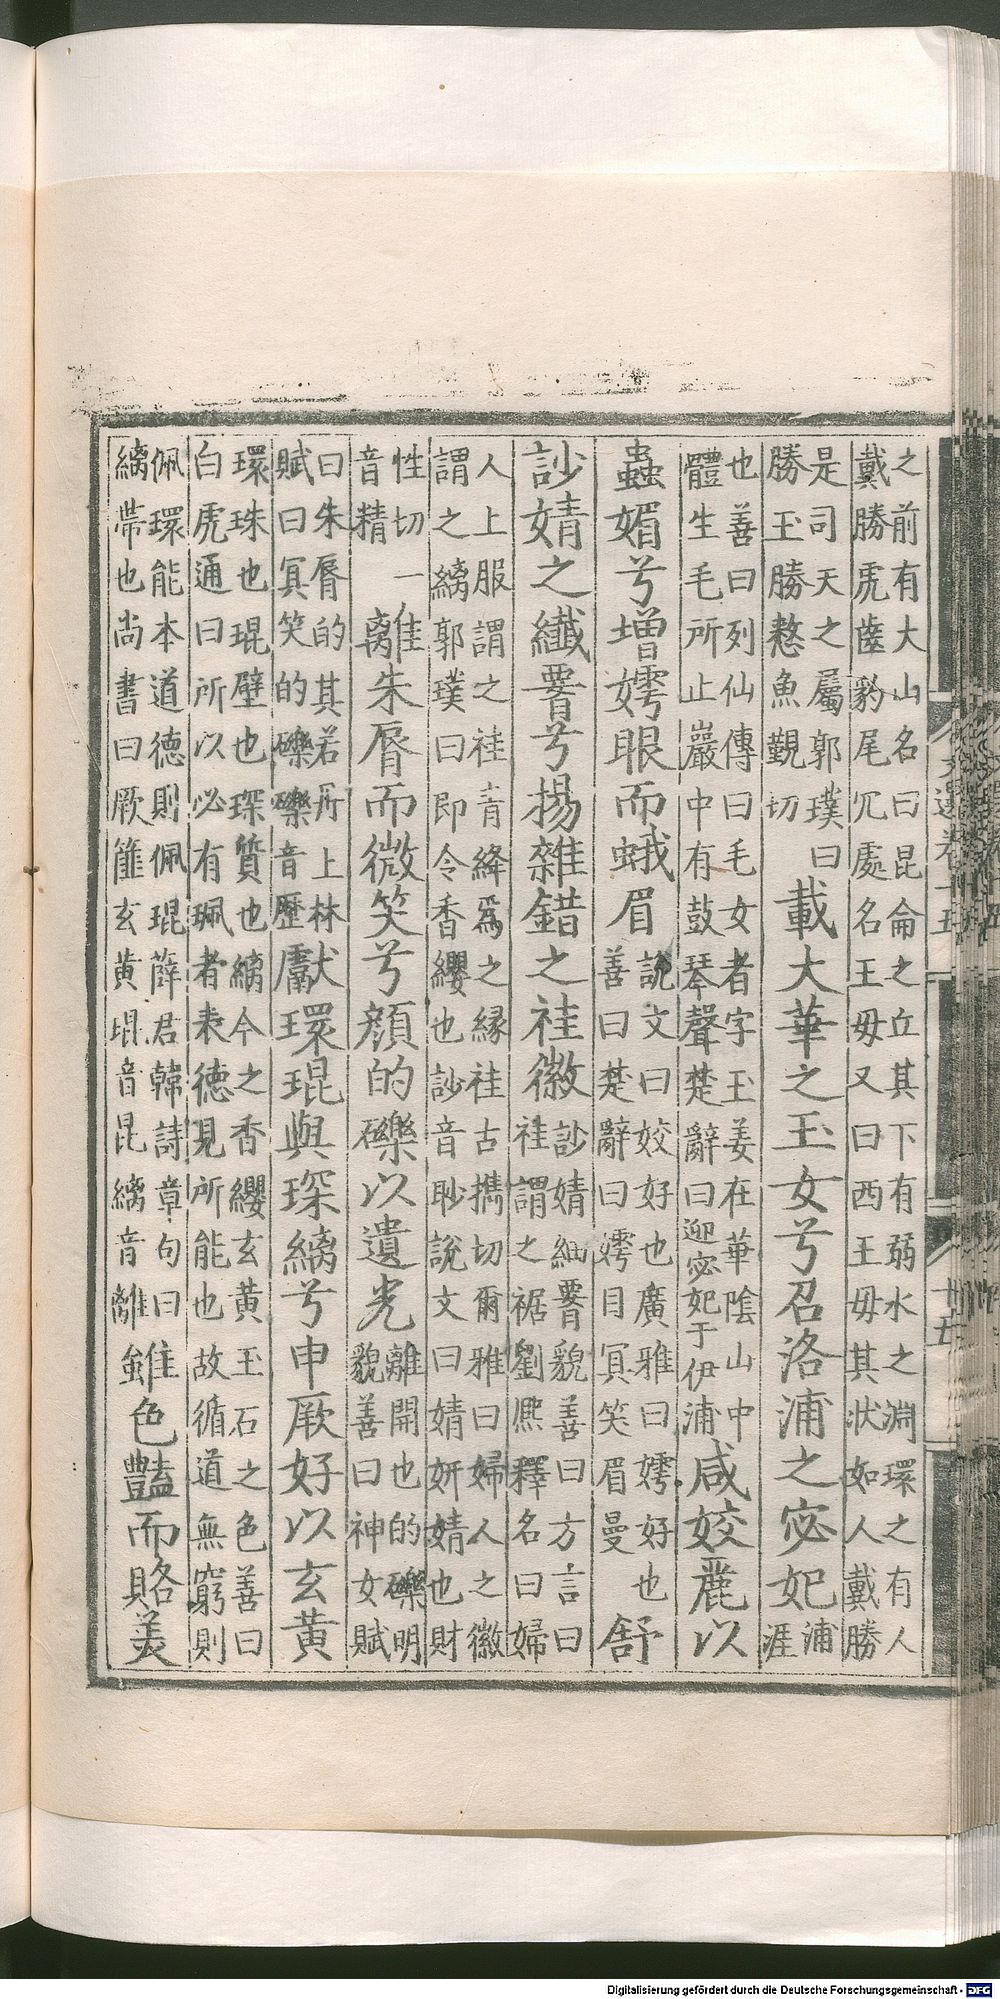 之前有大山名曰昆侖之丘其下有弱水之淵環之有人
戴勝虎齒豹尾冗處名王母又曰西王母其狀如人戴勝
是司天之屬郭璞曰
勝玉勝憗魚覲切
載大華之玉女兮召洛浦之宓妃
浦
涯
也善曰列仙傳曰毛女者字玉姜在華陰山中
體生毛所止巖中有鼓琴聲楚辭曰迎宓妃于伊浦
咸姣麗以
蠱媚兮增嫮眼而蛾眉
說文曰姣好也廣雅曰嫮好也
善曰楚辭曰嫮目冥笑眉曼
舒
訬婧之纖𦝫兮揚雜錯之袿徽
訬婧細𦝫貌善曰方言曰
袿謂之裾劉熙釋名曰婦
人上服謂之袿青絳爲之緣袿古攜切爾雅曰婦人之徽
謂之縭郭璞曰即今香纓也訬音眇說文曰婧妍婧也財
性切一
音精
離朱脣而微笑兮顏的礫以遺光
離開也的礫明
貌善曰神女賦
曰朱脣的其若丹上林
賦曰冥笑的礫礫音歷
獻環琨與琛縭兮申厥好以玄黃
環珠也琨璧也琛質也縭今之香纓玄黃玉石之色善曰
白虎通曰所以必有珮者表德見所能也故循道無窮則
佩環能本道德則佩琨薛君韓詩章句曰
縭帶也尚書曰厥篚玄黃琨音昆縭音離
雖色豔而賂美
Digitalisierung gefördert durch die Deutsche Forschungsgemeinschaft - DFG